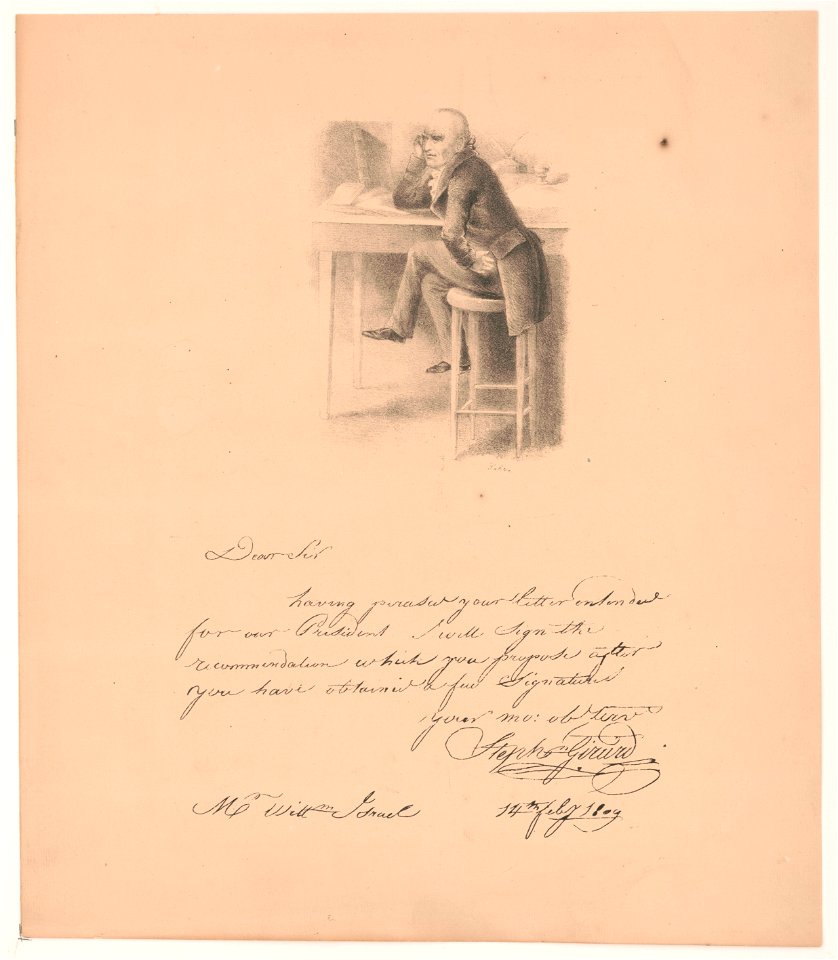 Dear Sir
having perused your letter intended
for our President I will sign the
recommendation which you propose after
you have obtained a few Signatures
your mo: ob. serv.
Stephn Girard
Mr Willm Israel
14th feby 1809